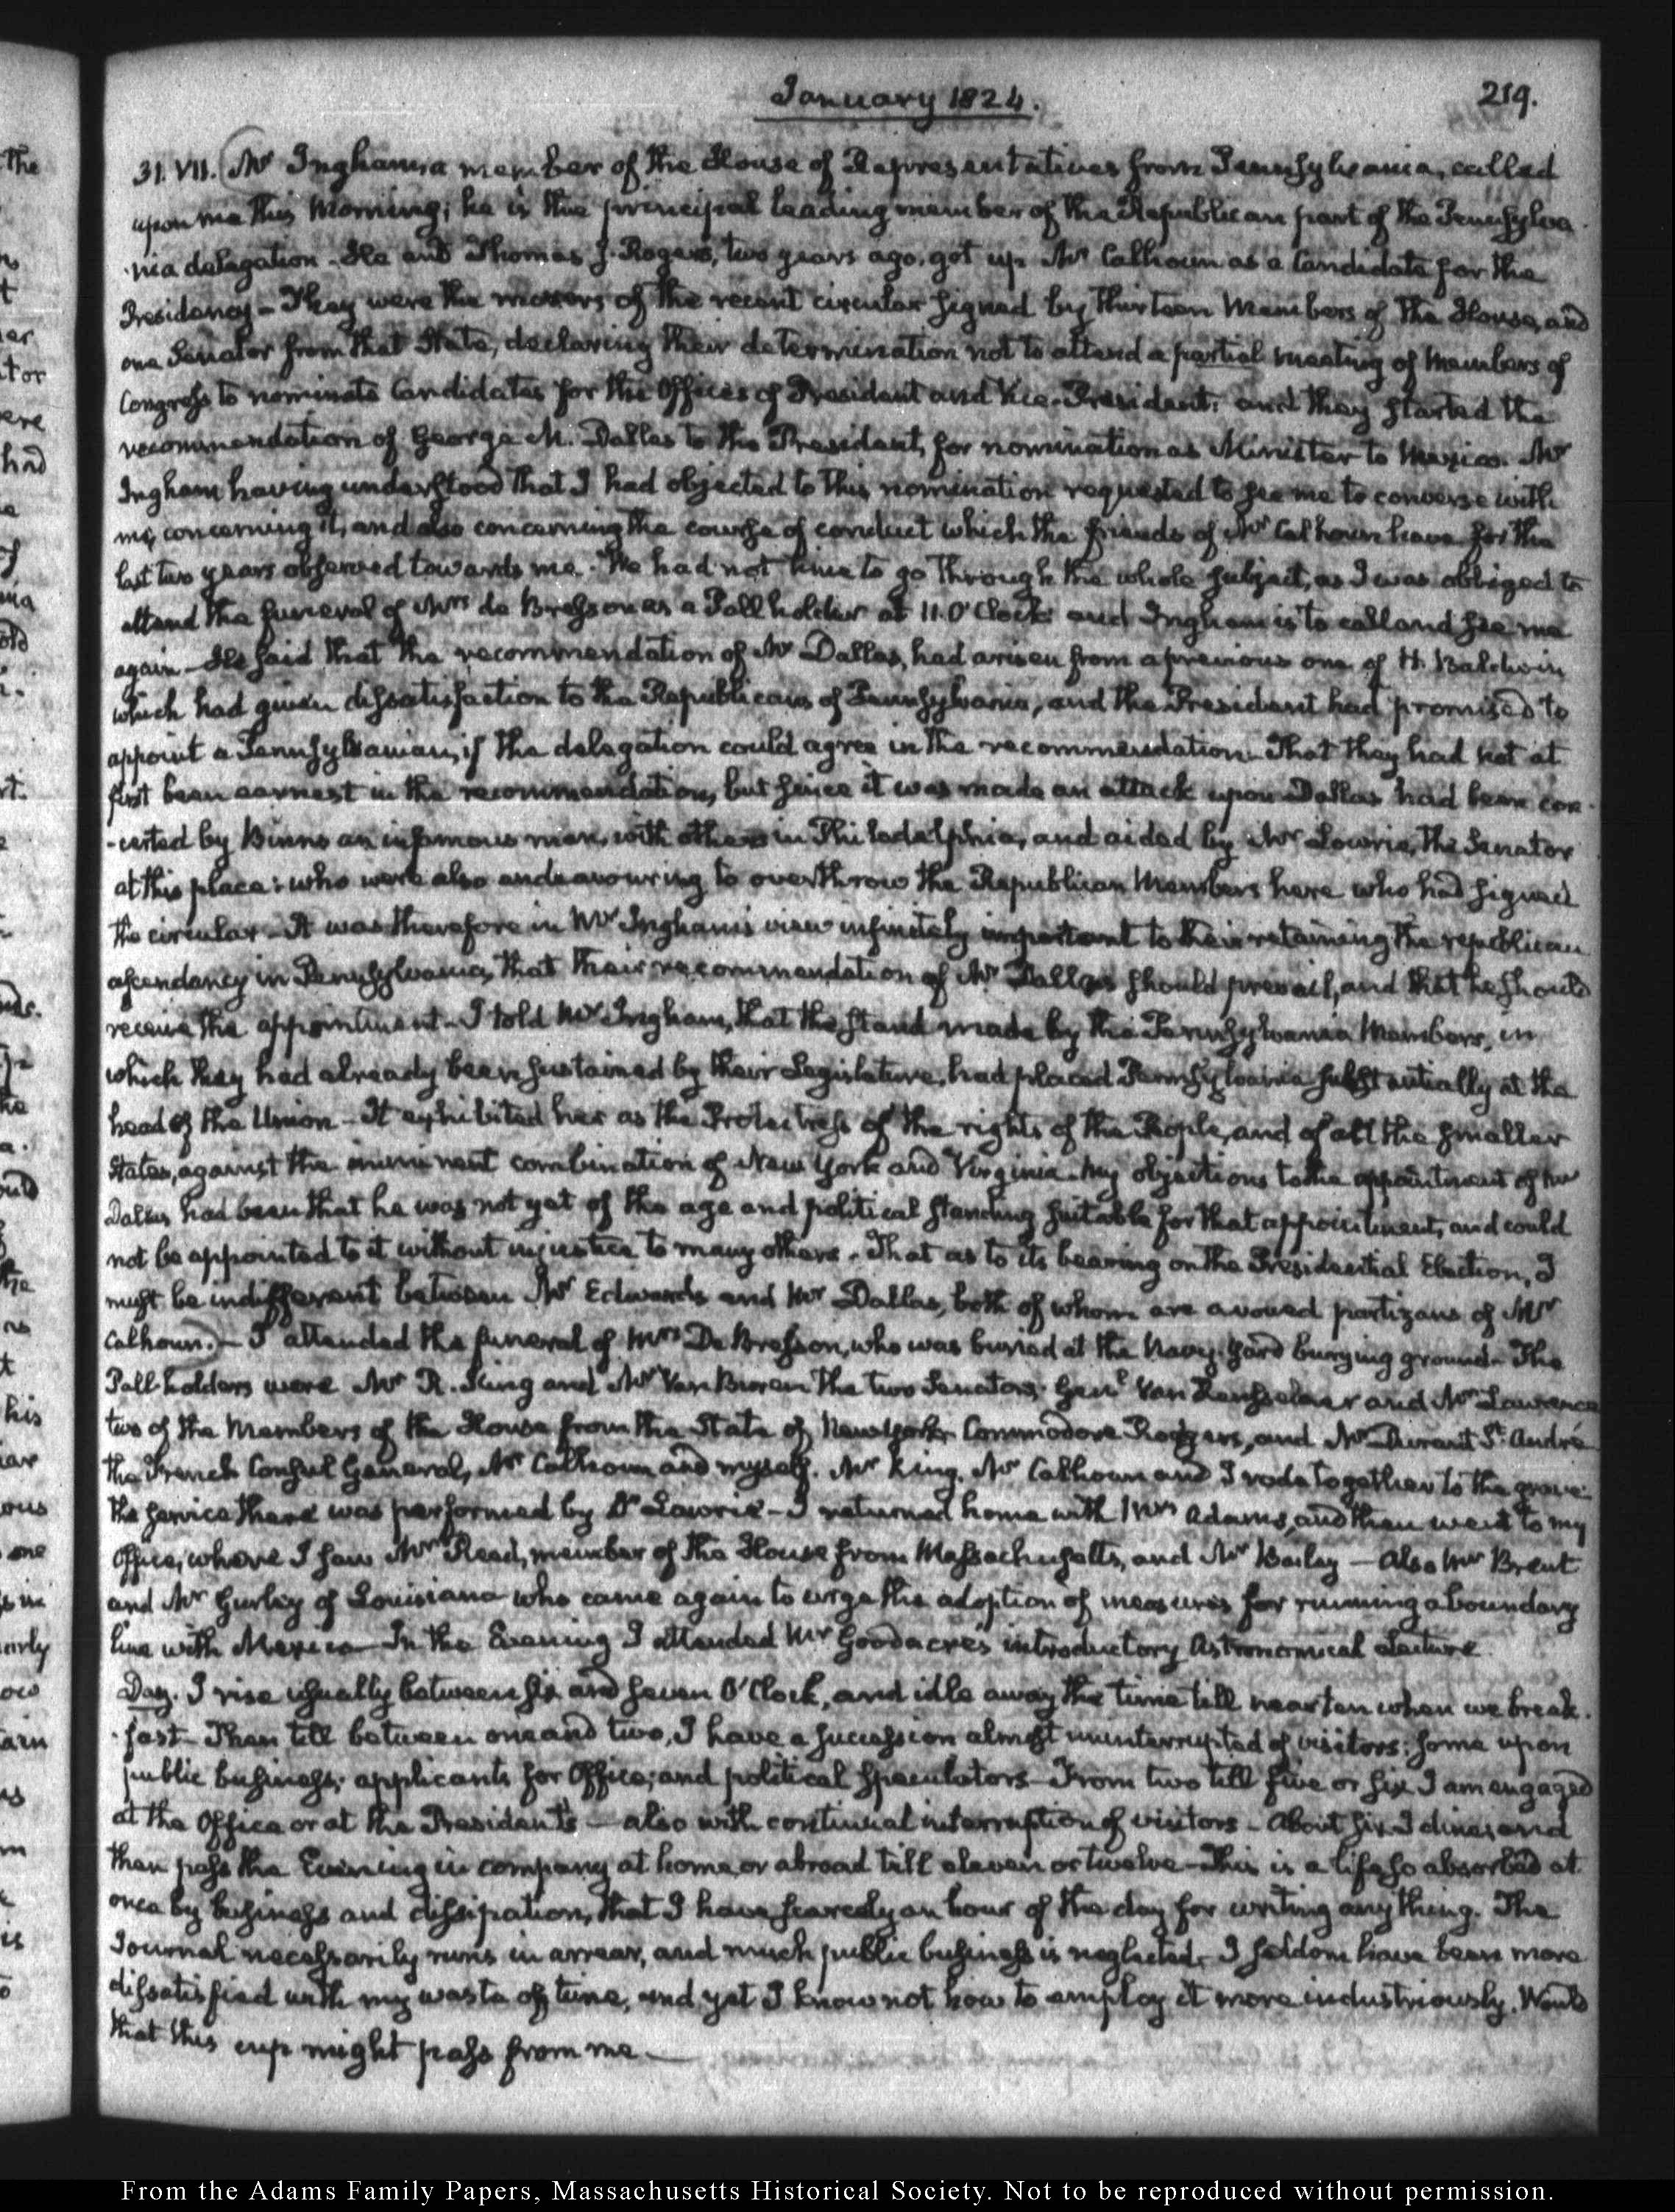 January 1824.
219.
31. VII. Mr Ingham, a member of the House of Representatives from Pennsylvania, called
upon me this Morning; he is the principal leading member of the Republican part of the Pennsylva
-nia delegation. He and Thomas J. Rogers, two years ago, got up Mr Calhoun as a Candidate for the
Presidency - They were the movers of the recent circular signed by thirteen Members of the House, and
one Senator from that State, declaring their determination not to attend a partial meeting of Members of
Congress to nominate Candidates for the Offices of President and Vice-President: and they started the
recommendation of George M. Dallas to the President, for nomination as Minister to Mexico. Mr
Ingham having understood that I had objected to this nomination requested to see me to converse with
me, concerning it, and also concerning the course of conduct which the friends of Mr Calhoun have for the
last two years observed towards me. We had not time to go through the whole subject, as I was obliged to
attend the funeral of Mrs de Bresson as a Pall holder at 11. O'Clock and Ingham is to call and see me
again - He said that the recommendation of Mr Dallas, had arisen from a previous one of H. Baldwin
which had given dissatisfaction to the Republicans of Pennsylvania, and the President had promised to
appoint a Pennsylvanian, if the delegation could agree in the recommendation. That they had not at
first been earnest in the recommendation, but since it was made an attack upon Dallas had been con-
-certed by Binns an infamous man, with others in Philadelphia, and aided by Mr Lowrie, the Senator
at this place: who were also endeavouring to overthrow the Republican Members here who had signed
the circular - It was therefore in Mr Ingham's view infinitely important to their retaining the republican
ascendancy in Pennsylvania, that their recommendation of Mr Dallas should prevail, and that he should
receive the appointment - I told Mr Ingham, that the stand made by the Pennsylvania Members, in
which they had already been sustained by their Legislature, had placed Pennsylvania substantially at the
head of the Union - It exhibited her as the Protectress of the rights of the People, and of all the smaller
States, against the imminent combination of New York and Virginia. My objections to the appointment of Mr
Dallas had been that he was not yet of the age and political standing suitable for that appointment, and could
not be appointed to it without injustice to many others. That as to its bearing on the Presidential Election, I
must be indifferent between Mr Edwards and Mr Dallas, both of whom are avowed partizans of Mr
Calhoun. - I attended the funeral of Mrs De Bresson, who was buried at the Navy-Yard burying ground. The
Pall holders were Mr R. King and Mr Van Buren the two Senators; Genl Van Rensselaer and Mr Lawrence
two of the Members of the House from the State of New York, Commodore Rodgers, and Mr Durant St. André
the French Consul General, Mr Calhoun and myself. Mr King, Mr Calhoun and I rode together to the grave:
the service there was performed by Dr Lawrie - I returned home with Mrs Adams, and then went to my
Office, where I saw Mr Read, member of the House from Massachusetts, and Mr Bailey - Also Mr Brent
and Mr Gurley of Louisiana who came again to urge the adoption of measures for running a boundary
line with Mexico. In the Evening I attended Mr Goodacre's introductory Astronomical Lecture.
Day. I rise usually between six and seven O'Clock, and idle away the time till near ten when we break-
-fast - Then till between one and two, I have a succession almost uninterrupted of visitors; some upon
public business; applicants for Office; and political speculators - From two till five or six I am engaged
at the Office or at the President's - also with continual interruption of visitors - About six I dine, and
then pass the Evening in company at home or abroad till eleven or twelve - This is a life so absorbed at
once by business and dissipation, that I have scarcely an hour of the day for writing any thing. The
Journal necessarily runs in arrear, and much public business is neglected. I seldom have been more
dissatisfied with my waste of time, and yet I know not how to employ it more industriously. Would
that this cup might pass from me -
From the Adams Family Papers, Massachusetts Historical Society. Not to be reproduced without permission.